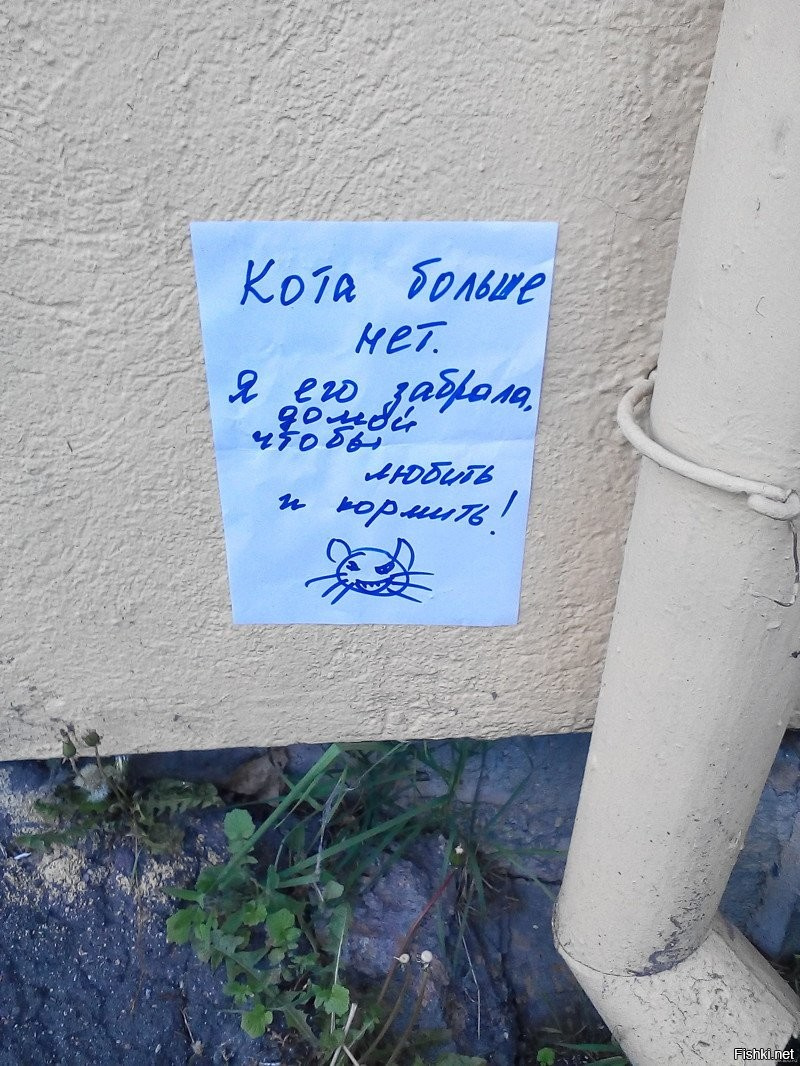 Кота больше
нет.
Я его забрала,
домой
чтобы
любить
и кормить!
Fishki.net